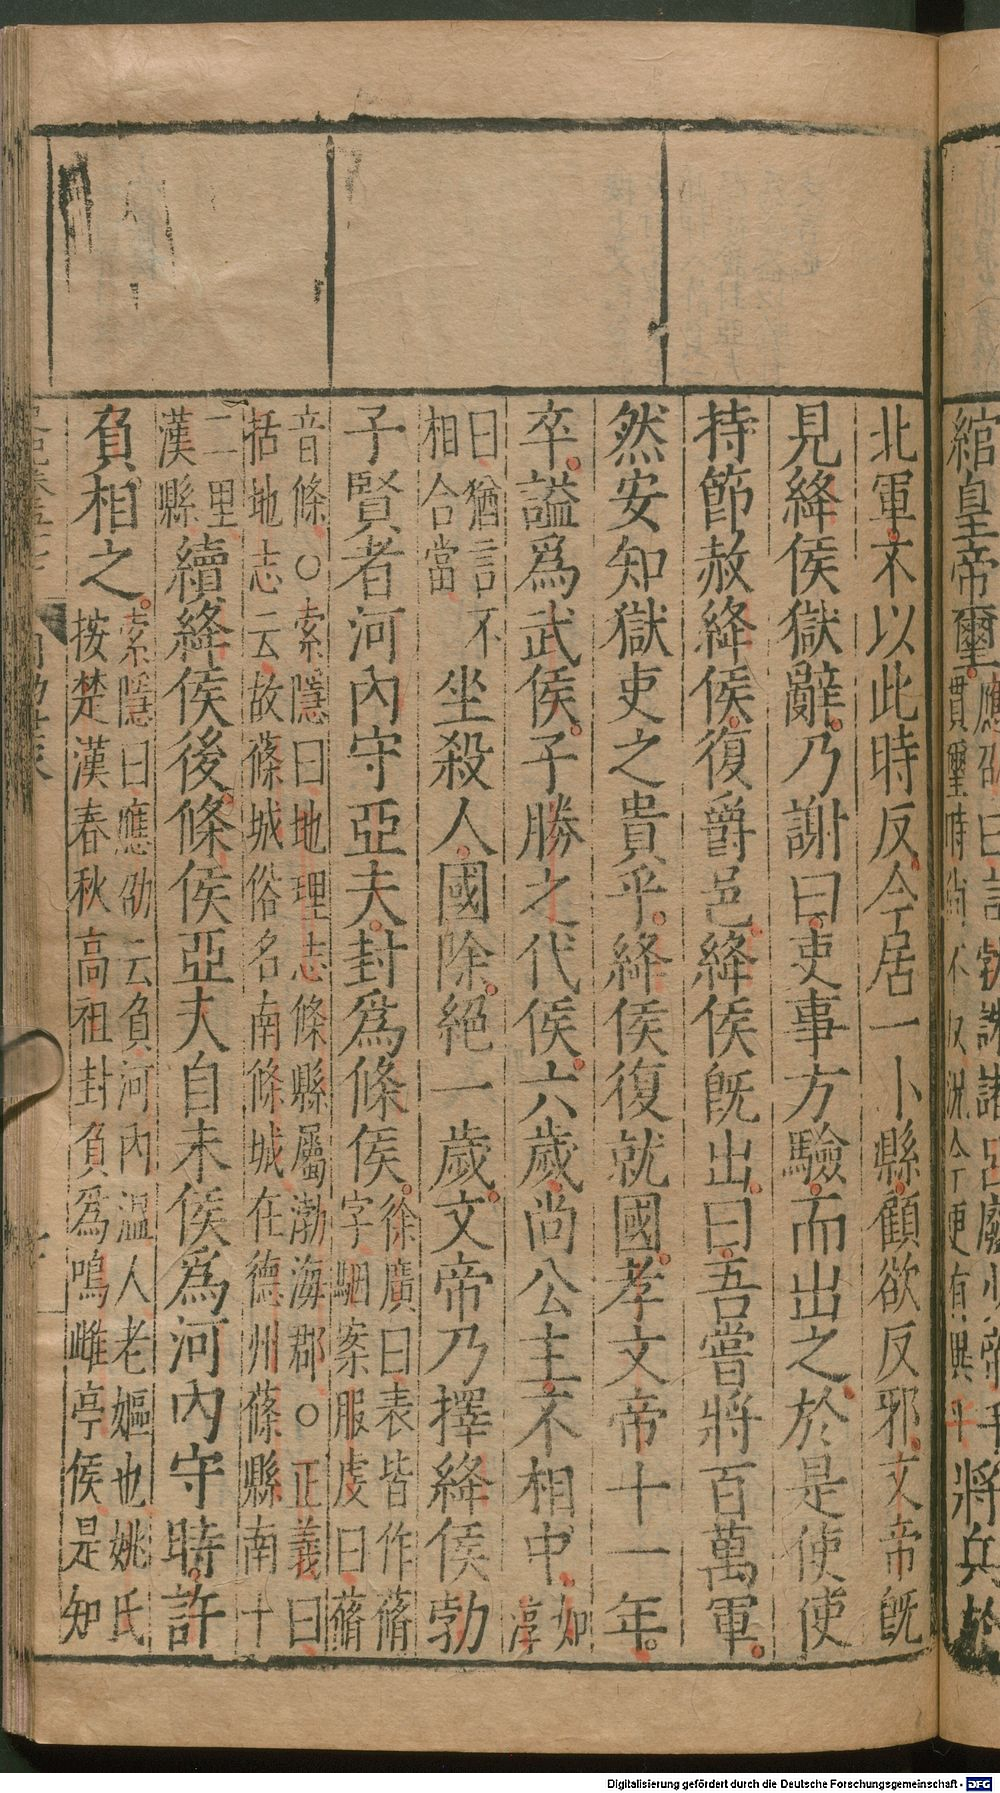 北軍不以此時反今居一小縣顧欲反邪文帝既
見絳侯獄辭乃謝曰吏事方驗而出之於是使使
持節赦絳侯復爵邑絳侯既出曰吾嘗將百萬軍
然安知獄吏之貴乎絳侯復就國孝文帝十一年
卒謚爲武侯子勝之代侯六歲尚公主不相中如淳
曰猶言不相合當坐殺人國除絕一歲文帝乃擇絳侯勃
子賢者河內守亞夫封爲條侯徐廣曰表皆作蓨字駰案服虔曰蓨
音條○索隱曰地理志條縣屬渤海郡○正義曰
括地志云故蓨城俗名南條城在德州蓨縣南十
二里漢縣續絳侯後條侯亞夫自未侯爲河內守時許
負相之索隱曰應劭云負河內溫人老嫗也姚氏
按楚漢春秋高祖封負爲鳴雌亭侯是知
Digitalisierung gefördert durch die Deutsche Forschungsgemeinschaft - DFG